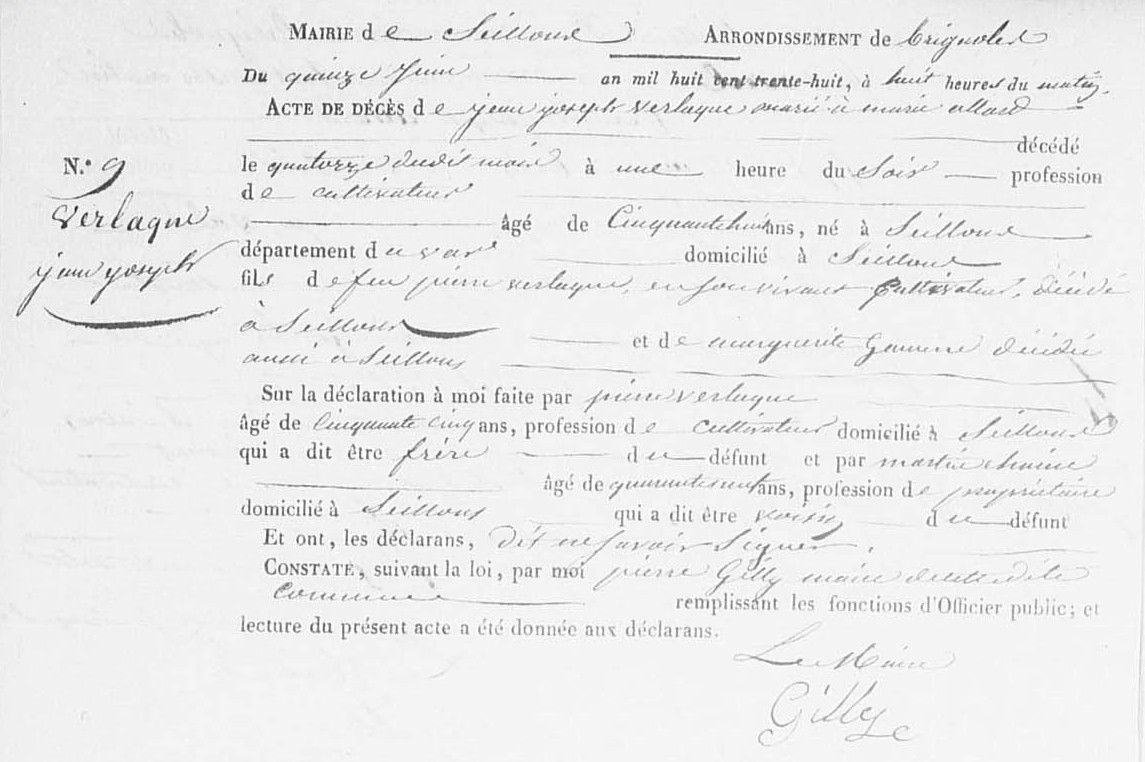 MAIRIE de Seillons ARRONDISSEMENT de brignoles
DU quinze juin an mil huit cent trente-huit, à huit heures du matin,
ACTE DE DÉCÈS de jean joseph verlaque marié à marie allard
décédé
N.º 9
le quatorze dudit mois à une heure du Soir profession
de cultivateur
Verlaque
jean joseph
âgé de Cinquantehuit ans, né à Seillons
département du var domicilié à Seillons
fils de feu pierre verlaque, en son vivant Cultivateur, décédé
à Seillons et de marguerite décédée
aussi à Seillons
Sur la déclaration à moi faite par pierre verlaque
âgé de Cinquante cinq ans, profession de cultivateur domicilié à Seillons
qui a dit être frère du défunt et par martin
âgé de ans, profession de propriétaire
domicilié à Seillons qui a dit être voisin du défunt
Et ont, les déclarans, dit ne savoir Signer,
CONSTATÉ, suivant la loi, par moi pierre Gilly maire de
Commune remplissant les fonctions d'Officier public; et
lecture du présent acte a été donnée aux déclarans.
Le Maire
Gilly